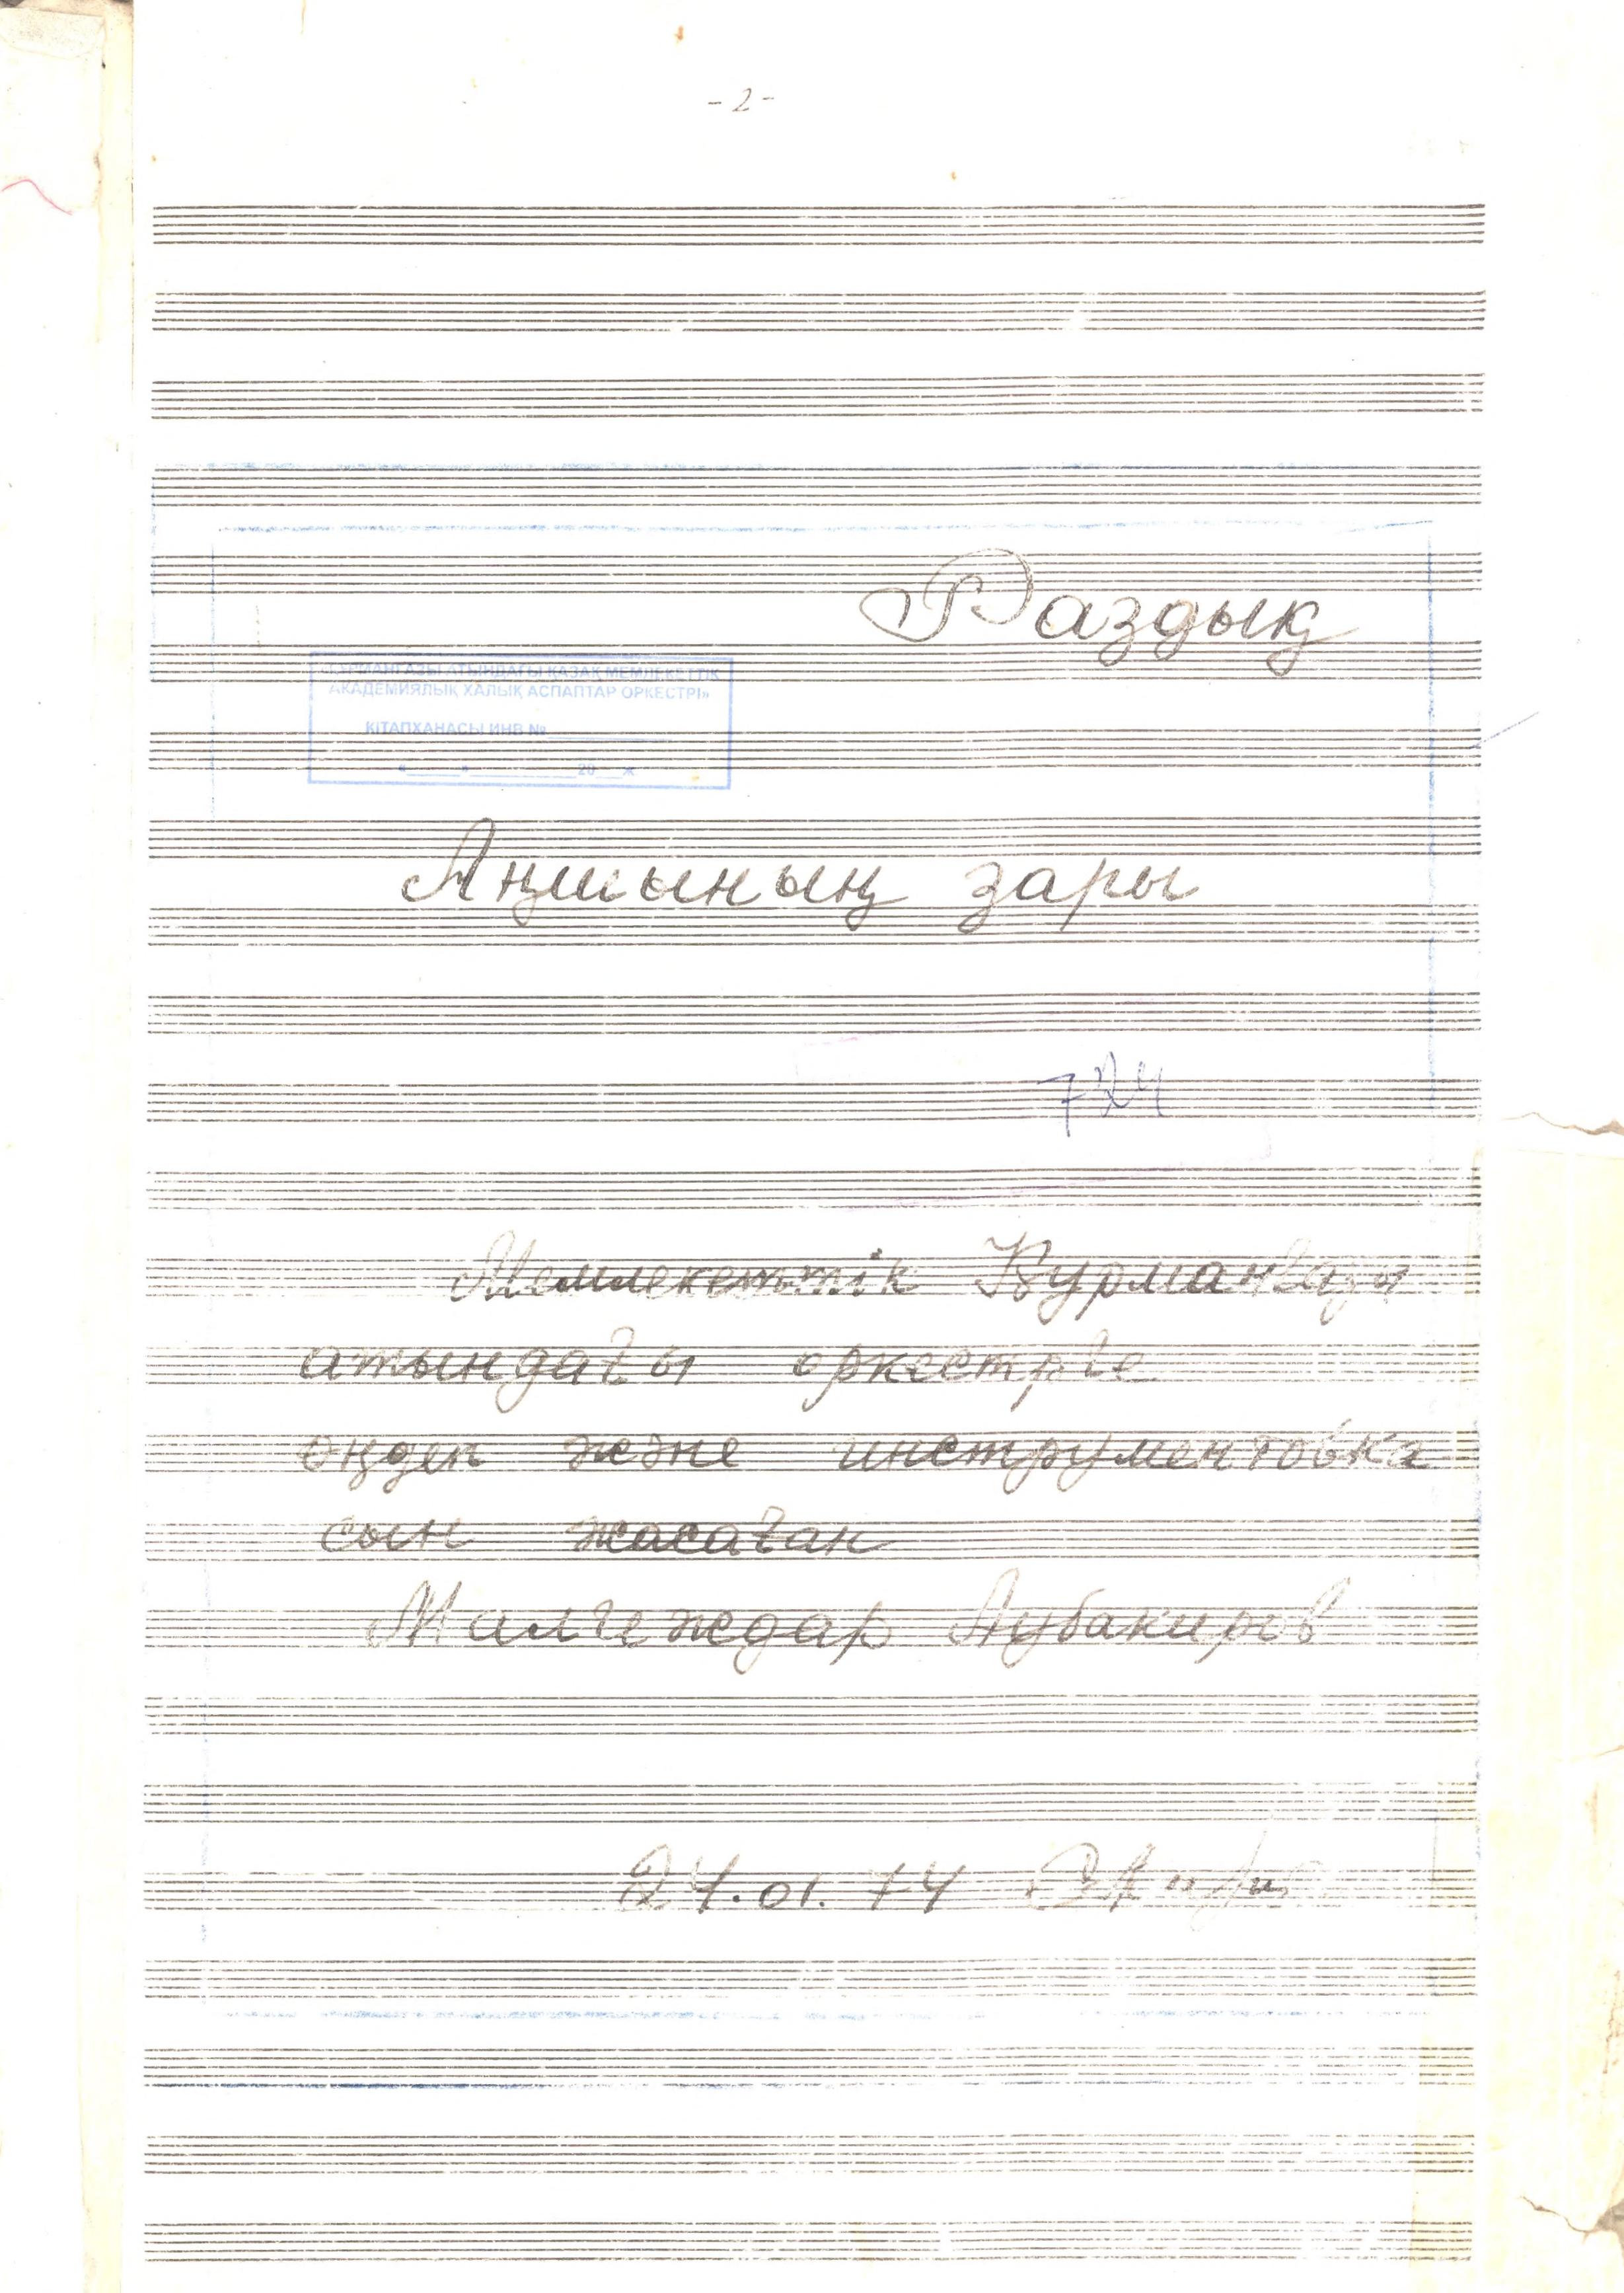 - 2 -
Раздық
«ҚҰРМАНҒАЗЫ АТЫНДАҒЫ ҚАЗАҚ МЕМЛЕКЕТТІК
АКАДЕМИЯЛЫҚ ХАЛЫҚ АСПАПТАР ОРКЕСТРІ»
КІТАПХАНАСЫ ИНВ №
«____»__________20__ж
Аңшының зары
724
Мемлекеттік Құрманғазы
атындағы оркестрге
өңдеп және инструментовка
сын жасаған
Малгеждар Аубакиров
24.01.74